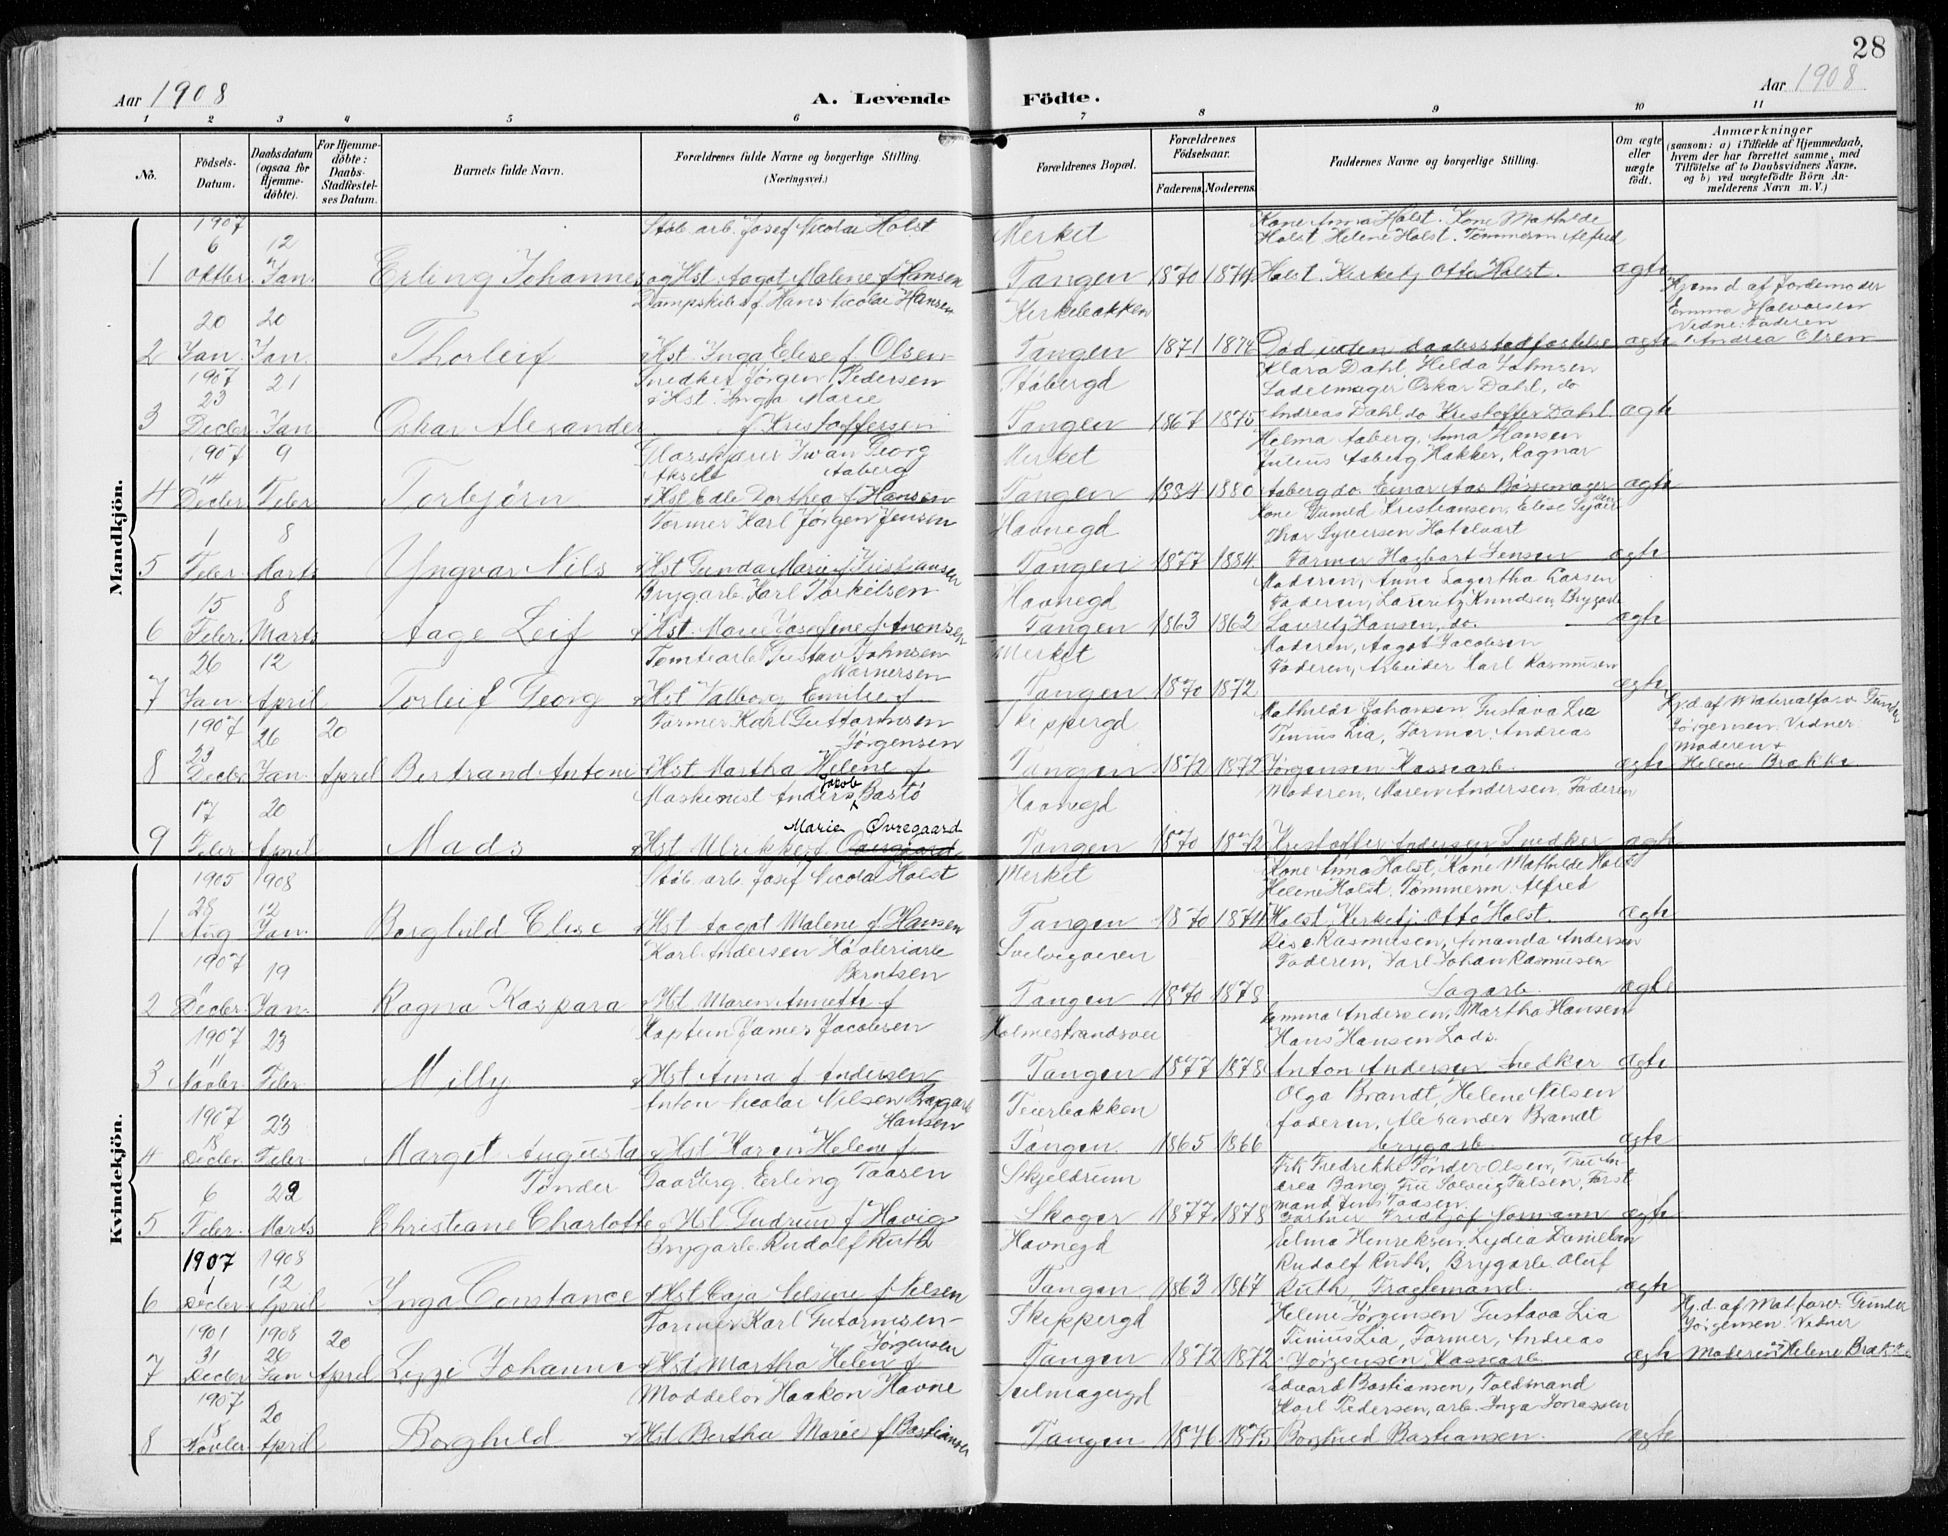 28
Aar 1908
A. Levende Födte.
Aar 1908
1 2 3 4 5 6 7 8 9 10 11
No.
Födsels-Datum.
Daabsdatum (ogsaa for Hjemmedöbte).
For Hjemmedöbte: Daabs-Stadfæstelses Datum.
Barnets fulde Navn.
Forældrenes fulde Navne og borgerlige Stilling. (Næringsvei.)
Forældrenes Bopæl.
Forældrenes Födselsaar.
Faderens. Moderens.
Faddernes Navne og borgerlige Stilling.
Om ægte eller uægte födt.
Anmærkninger
(saasom: a) i Tilfælde af Hjemmedaab, hvem der har forrettet samme, med Tilföielse af to Daabsvidners Navne, og b) ved uægtefödte Börn Anmelderens Navn m. V.)
Mandkjön.
1907
6 12 Støb. arb. Josef Nicolai Holst Merket Kone Anna Holst. Kone Mathilde
Holst Helene Holst. Tømmerm Alfred
1 Oktbr. Jan. Erling Johannes og Hst. Aagot Malene f. Hansen Tangen 1870 1874 Holst. Kirketj. Otto Holst. ægte
20 20 Hans Nicolai Hansen Kirkebakken Hjem d. af Jordemoder
Emma Halvorsen
Vidne: Faderen
2 Jan. Jan. Thorleif Hst. Inga Elise f. Olsen Tangen 1871 1874 Død uden daabsstadfæstelse ægte Andrea Olsen
1907
23 21 Snedker Jørgen Pedersen Støbergd Klara Dahl, Hilda
Hst. Inga Marie Sadelmager Oskar Dahl, do
3 Decbr. Jan. Oskar Alexander f. Kristoffersen Tangen 1867 1875 Andreas Dahl, do Kristoffer Dahl ægte
1907
14 9 Iwan Georg Merket Helma Aaberg, Anna Hansen
Aksels Aaberg Julius Aaberg Hakker, Ragnar
4 Decbr Febr Torbjörn Hst. Edle Dorthea f. Hansen Tangen 1884 1880 Aaberg do. Einar Aas ægte
1 8 Former Karl Jørgen Jensen Havnegd Kone Kristiansen, Elise
Thor Syversen
5 Febr. Marts Yngvar Nils Hst Gunda Marie f. Kristiansen Tangen 1877 1884 Former Hagbart Jensen ægte
15 8 Brygarb. Karl Torkilsen Havnegd Moderen, Anne Lagertha Larsen
Faderen, Lauritz Knudsen, Brygarb.
6 Febr. Marts Aage Leif Hst. Marie Josefine f. Anonsen Tangen 1863 1862 Lauritz Hansen, do. ægte
26 12 Tomtearb Gustav Johnsen Merket Moderen, Aagot Jacobsen
Faderen, Arbeider Karl Rasmusen
7 Jan April Torleif Georg Hst Valborg Emilie f. Tangen 1870 1872 ægte
1907
23 26 20 Former Karl Guttormsen Jørgensen Skippergd Mathilde Johansen Gustava Lia
Tinius Lia, Former. Andreas
Hj. d. af Materialforv. Gunder
Jørgensen. Vidner
Moderen &
8 Decbr Jan. April Bertrand Antoni Hst Martha Helene f. Tangen 1872 1872 Jørgensen Kassearb. ægte Helene Brakke
17 20 Maskinist Anders Jakob Bastø Havnegd Moderen, Maren Andersen, Faderen
Marie Ovregaard
9 Febr. April Mads Hst Ulrikke f. Tangen 1870 1872 Kristoffer Andersen Snedker ægte
Kvindekjön.
1905 1908 Støb. arb. Josef Nicolai Holst Merket Kone Anna Holst, Kone Mathilde Holst
28 12 Helene Holst. Tømmerm. Alfred
1 Aug Jan. Borghild Elise Hst Aagot Malene f. Hansen Tangen 1870 1874 Holst. Kirketj. Otto Holst. ægte
1907 19 Karl Andersen Høvleriarb Berntsen Svelvigveien Lise Rasmusen, Amanda Andersen
Faderen, Karl Johan Rasmusen
2 Decbr. Jan. Ragna Kaspara Hst Maren Annette f Tangen 1870 1878 Sagarb. ægte
1907
11 23 Kaptein James Jacobsen Holmestrandsvei Emma Andersen, Martha Hansen
Hans Hansen Lods.
3 Novbr Febr Milly Hst Anna f Andersen Tangen 1877 1878 Anton Andersen Snedker ægte
1907
18 23 Anton Nicolai Nilsen Brygarb Hansen Teierbakken Olga Brandt, Helene Nilsen
Faderen, Alexander Brandt
4 Decbr. Febr. Marget Augusta Hst Karen Helene f Tangen 1865 1866 brygarb ægte
6 29 Tønder Gaardbrg. Erling Taasen Skjeldrum Frk Fredrikke Tønder Olsen, Fru Andrea Bang, Fru Solveig Falsen, Forstmand Jens Taasen
5 Febr. Marts Christiane Charlotte Hst Gudrun f Havig Skoger 1877 1878 Gartner Fridtjof Normann ægte
1907 1908 Brygarb. Rudolf Ruth Havnegd Selma Henriksen, Lydia Danielsen
1 12 Rudolf Ruth, Brygarb Oluf
6 Decbr April Inga Constance Hst Caja Nilsine f Nilsen Tangen 1863 1867 Ruth, Fragtemand. ægte
1901 1908
31 26 20 Former Karl Guttormsen Jørgensen Skippergd Helene Jørgensen Gustava Lia
Tinius Lia, Former, Andreas
Hj. d. af Matforv. Gunder
Jørgensen Vidner
7 Decbr Jan April Lizzi Johanne Hst. Martha Helen f Tangen 1872 1872 Jørgensen, Kassearb. ægte Moderen Helene Brakke
1907
15 20 Moddelør Haakon Havne Seilmagergd Edvard Bastiansen, Toldmand
Karl Pedersen, arb. Inga Jonassen
8 Novbr April Borghild Hst Bertha Marie f Bastiansen Tangen 1876 1875 Borghild Bastiansen. ægte